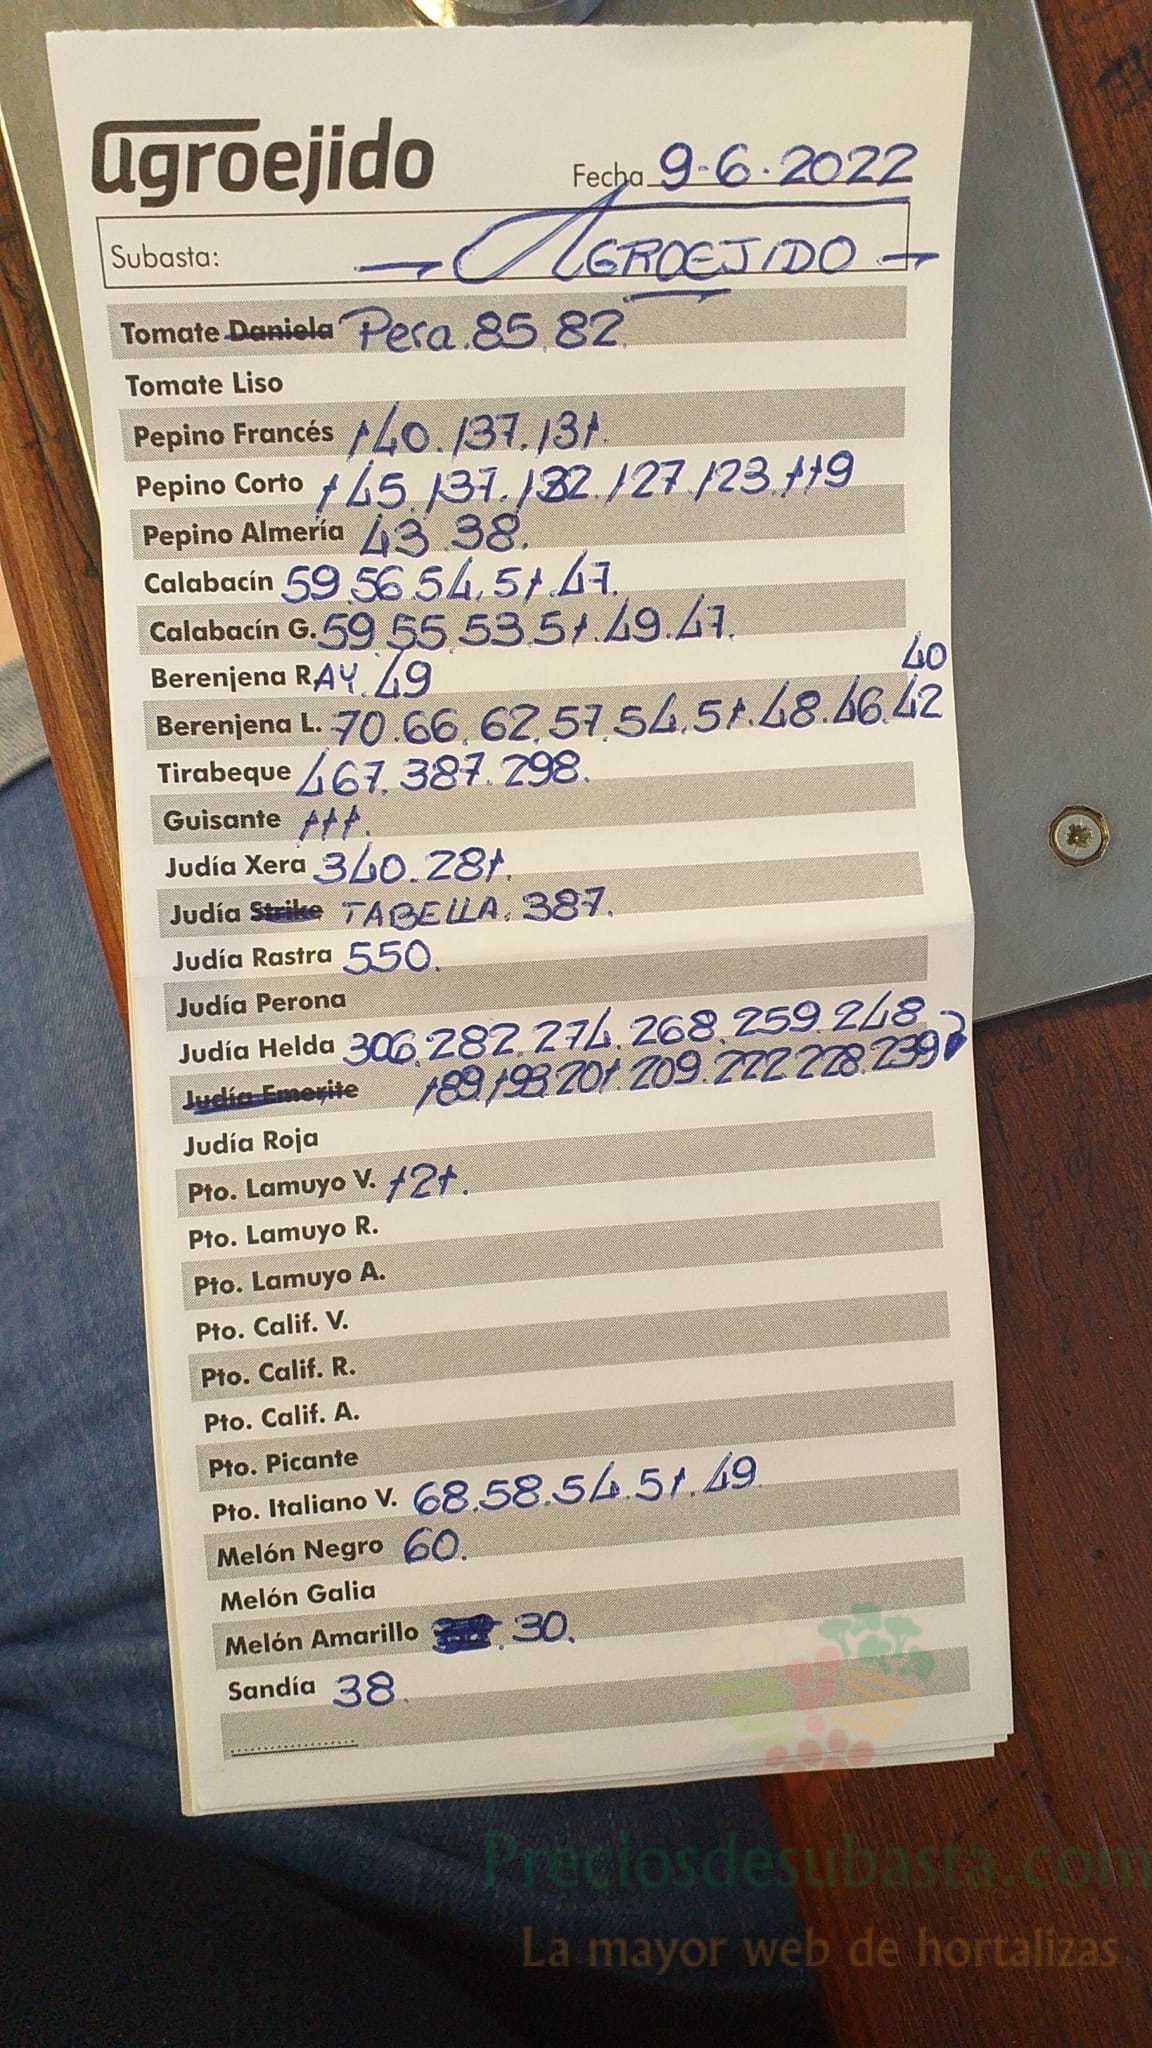 agroejido
Fecha 9-6-2022
Subasta: AGROEJIDO
Tomate Daniela Pera. 85. 82.
Tomate Liso
Pepino Francés 140. 137. 131.
Pepino Corto 145. 137. 132. 127. 123. 119
Pepino Almería 43. 38.
Calabacín 59. 56. 54. 51. 47.
Calabacín G. 59. 55. 53. 51. 49. 47.
Berenjena RAY. 49
40
Berenjena L. 70. 66. 62. 57. 54. 51. 48. 46. 42
Tirabeque 467. 387. 298.
Guisante 111.
Judía Xera 340. 281.
Judía Strike TABELLA. 387.
Judía Rastra 550.
Judía Perona
Judía Helda 306. 282. 274. 268. 259. 248
Judía Emerite 189. 193. 201. 209. 222. 228. 239
Judía Roja
Pto. Lamuyo V. 121.
Pto. Lamuyo R.
Pto. Lamuyo A.
Pto. Calif. V.
Pto. Calif. R.
Pto. Calif. A.
Pto. Picante
Pto. Italiano V. 68. 58. 54. 51. 49
Melón Negro 60.
Melón Galia
Melón Amarillo . 30.
Sandía 38.
Preciosdesubasta.com
La mayor web de hortalizas